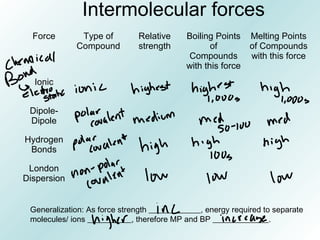 Intermolecular forces
Force Type of Compound Relative strength Boiling Points of Compounds with this force Melting Points of Compounds with this force
Chemical Bond
Ionic ionic highest highest 1,000s high 1,000s
Electrostatic
Dipole-Dipole polar covalent medium med 50-100 med
Hydrogen Bonds polar covalent high high 100s high
London Dispersion non-polar covalent low low low
Generalization: As force strength inc, energy required to separate
molecules/ ions higher, therefore MP and BP increase.